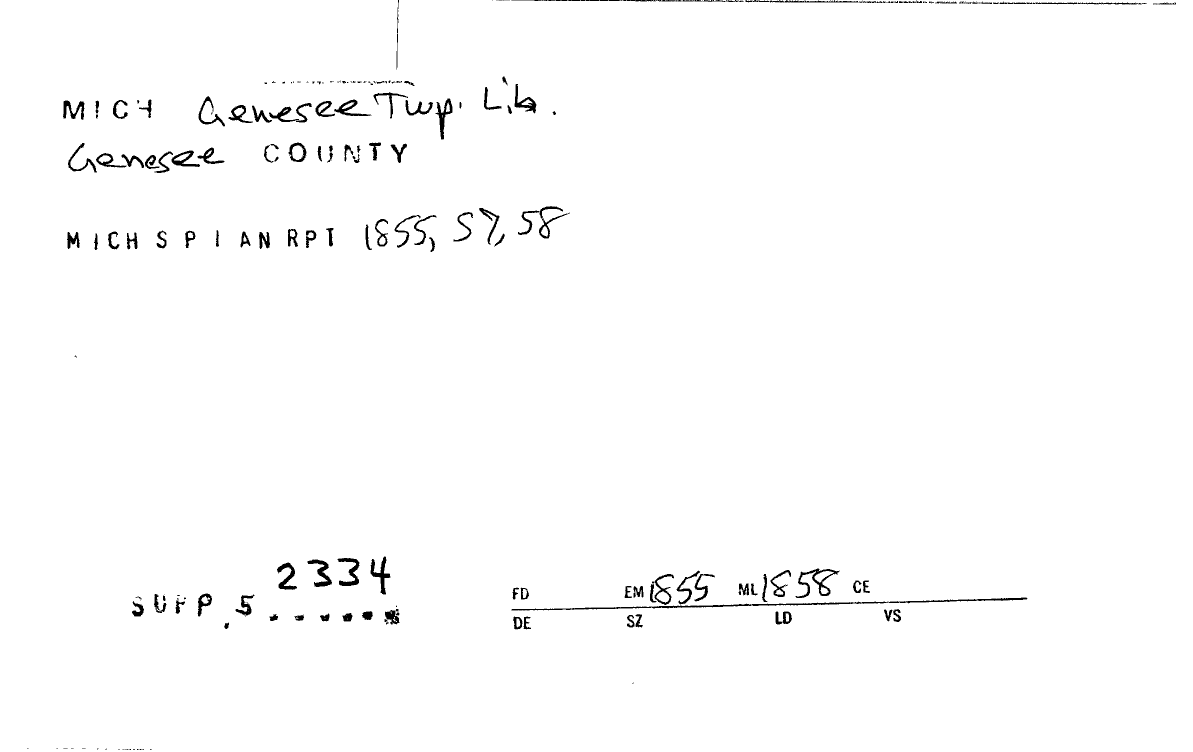 MICH Genesee Twp. Lib.
Genesee COUNTY
MICH S P I AN RPT 1855, 57, 58
2334
SUPP.5......
FD EM 1855 ML 1858 CE
DE SZ LD VS